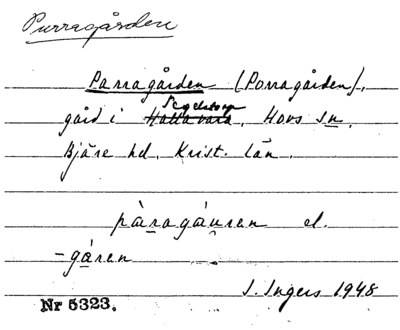 Purragården
Parragården (Porragården),
gård i Hallavara, Hovs sn.
Bjäre hd. Krist. län.
pàragáuren el.
-gáren
I. Ingers 1948
Nr 5323.